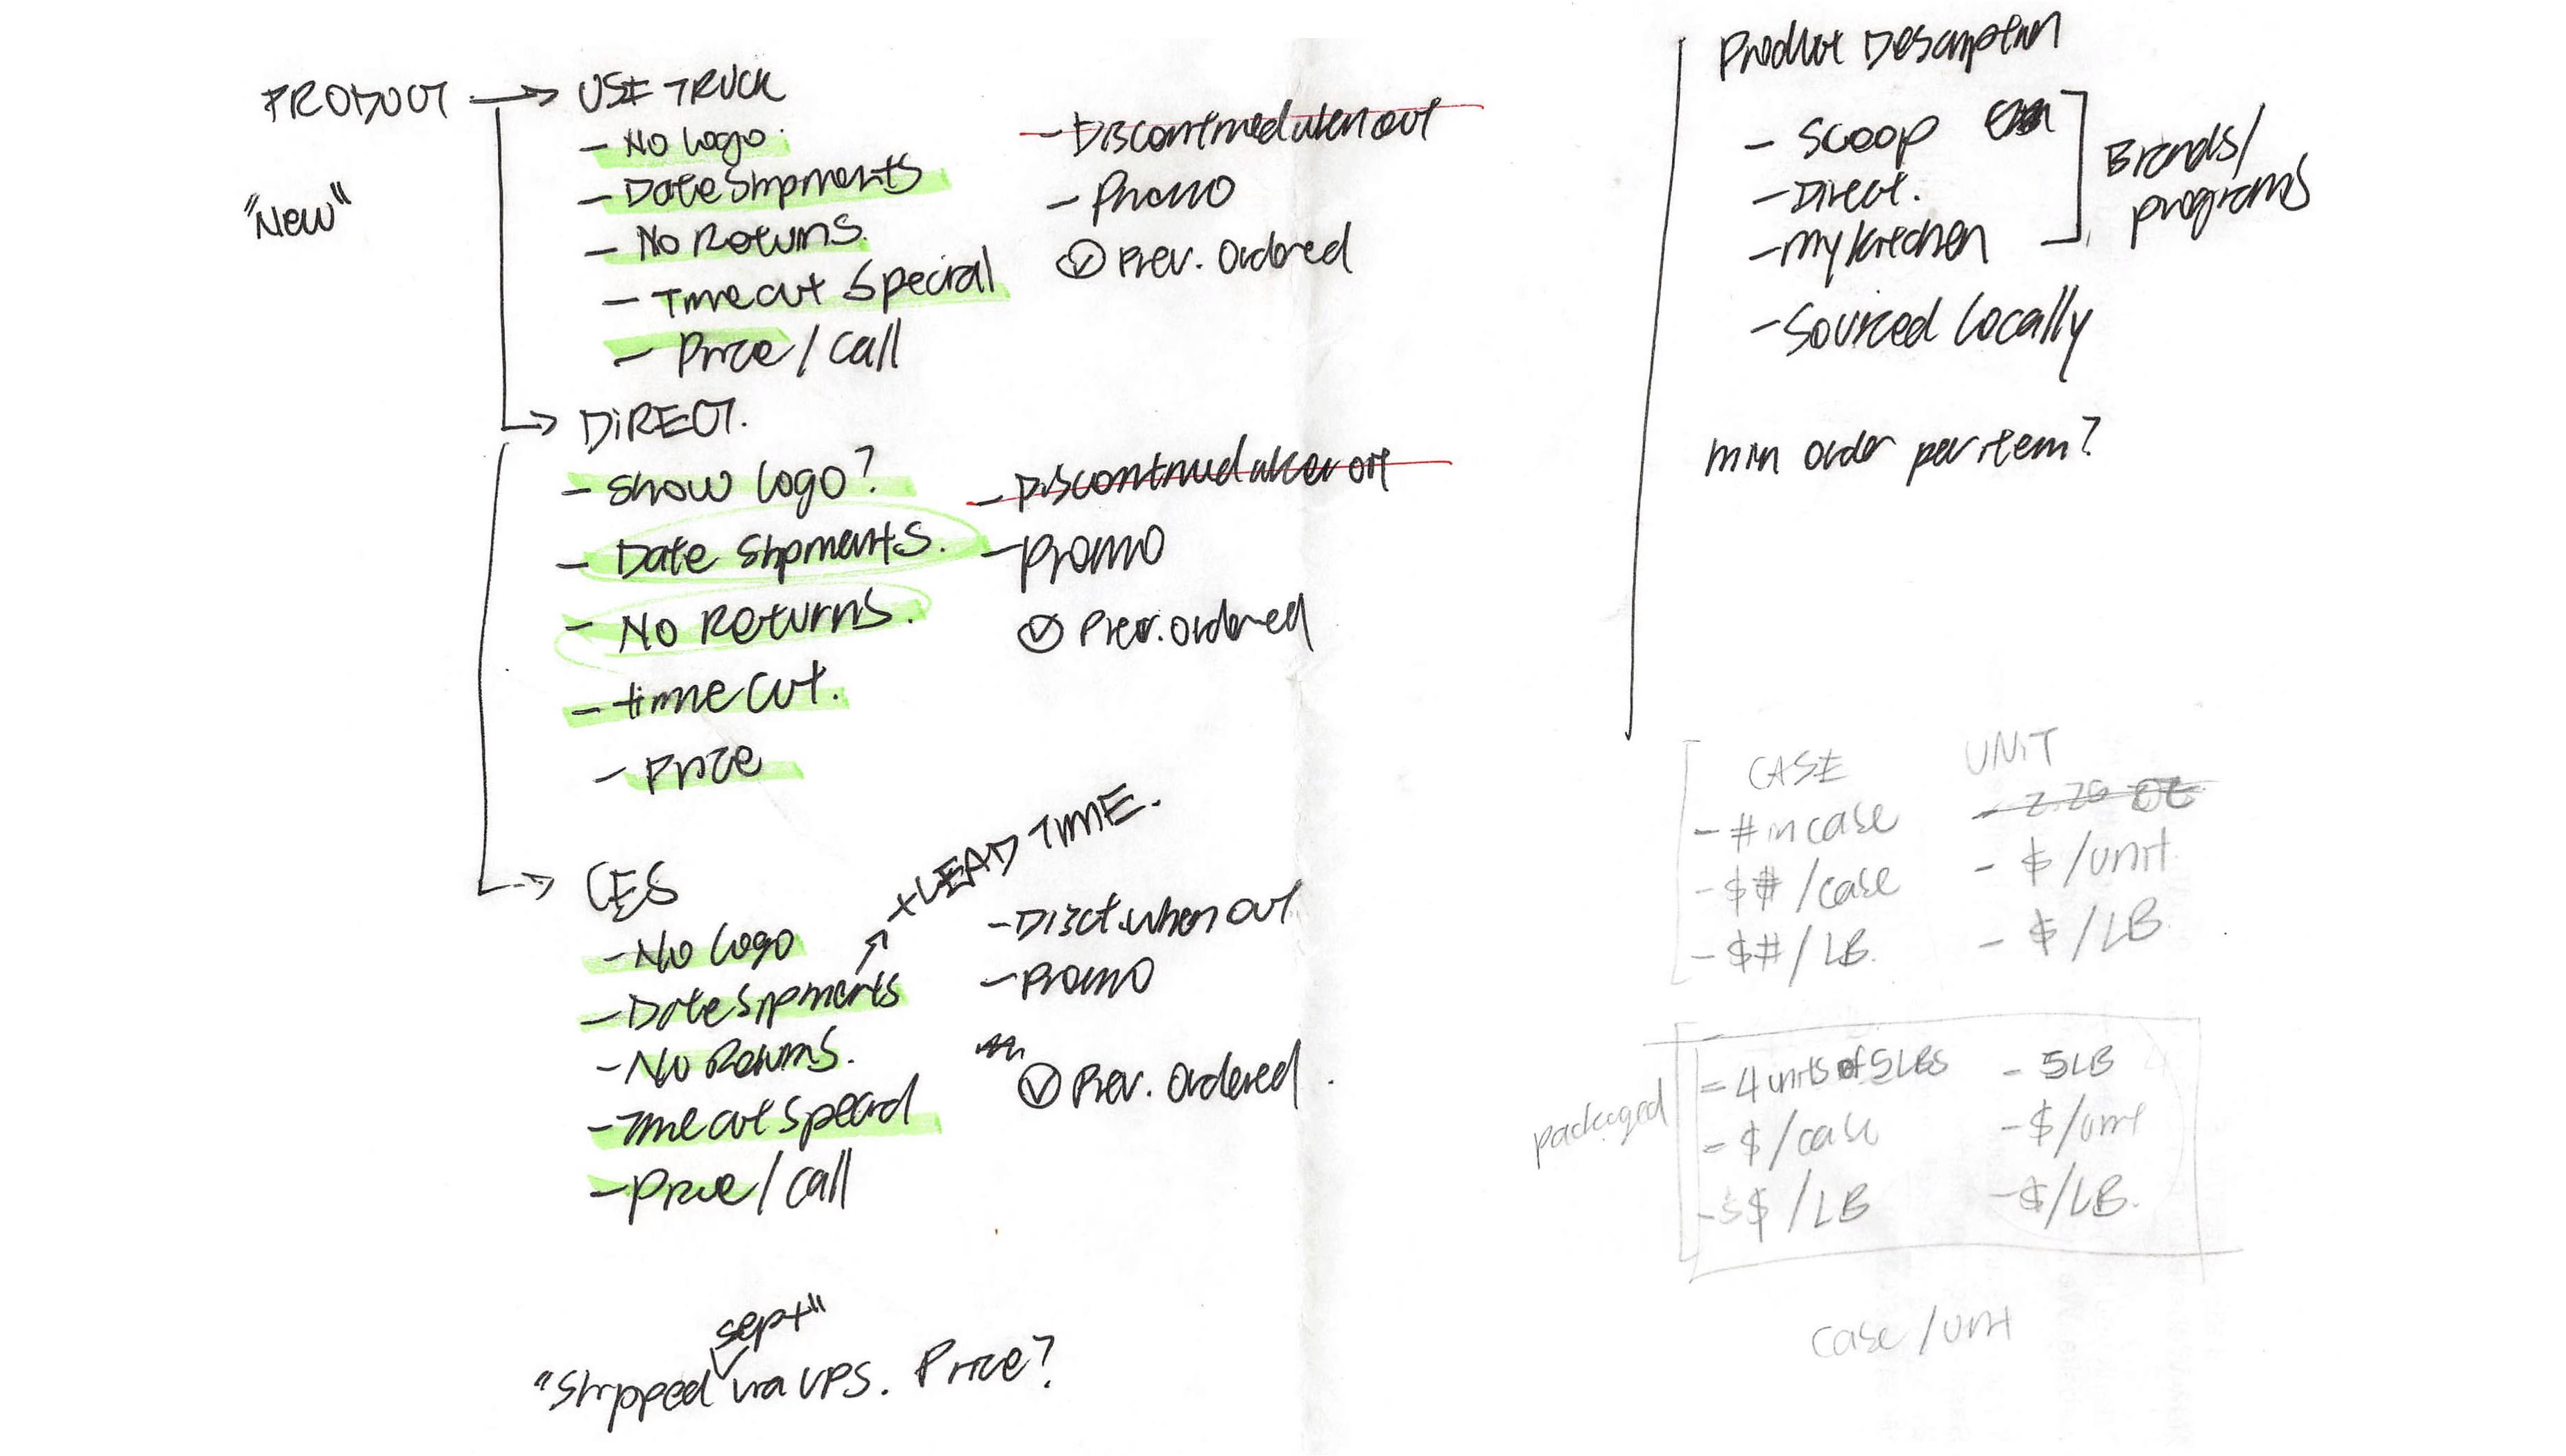 PRODUCT → USE TRUCK
"New"
- No logo.
- Date Shipments
- No Returns.
- Time cut Special
- Price / call
- Discontinued when out
- Promo
✓ Prev. Ordered
→ DIRECT.
- Show logo?
- Date Shipments.
- No Returns.
- time cut.
- Price
- Promo
✓ Prev. ordered
→ CES
- No logo
- Date Sipments
+ LEAD TIME.
- No Returns.
- Time cut Special
- Price / call
- Disct. when out
- Promo
✓ Prev. Ordered.
sept"
"Shipped via UPS. Price?
Product Description
- Scoop
- Direct.
- my kitchen
Brands/
programs
- Sourced locally
min order per item?
CASE
- # in case
- $# /case
- $# / LB.
UNIT
- $ /unit
- $ / LB
packaged
= 4 units of 5 LBS
= $ /case
- $ / LB
- 5 LB
- $/unit
- $/LB.
case / unit